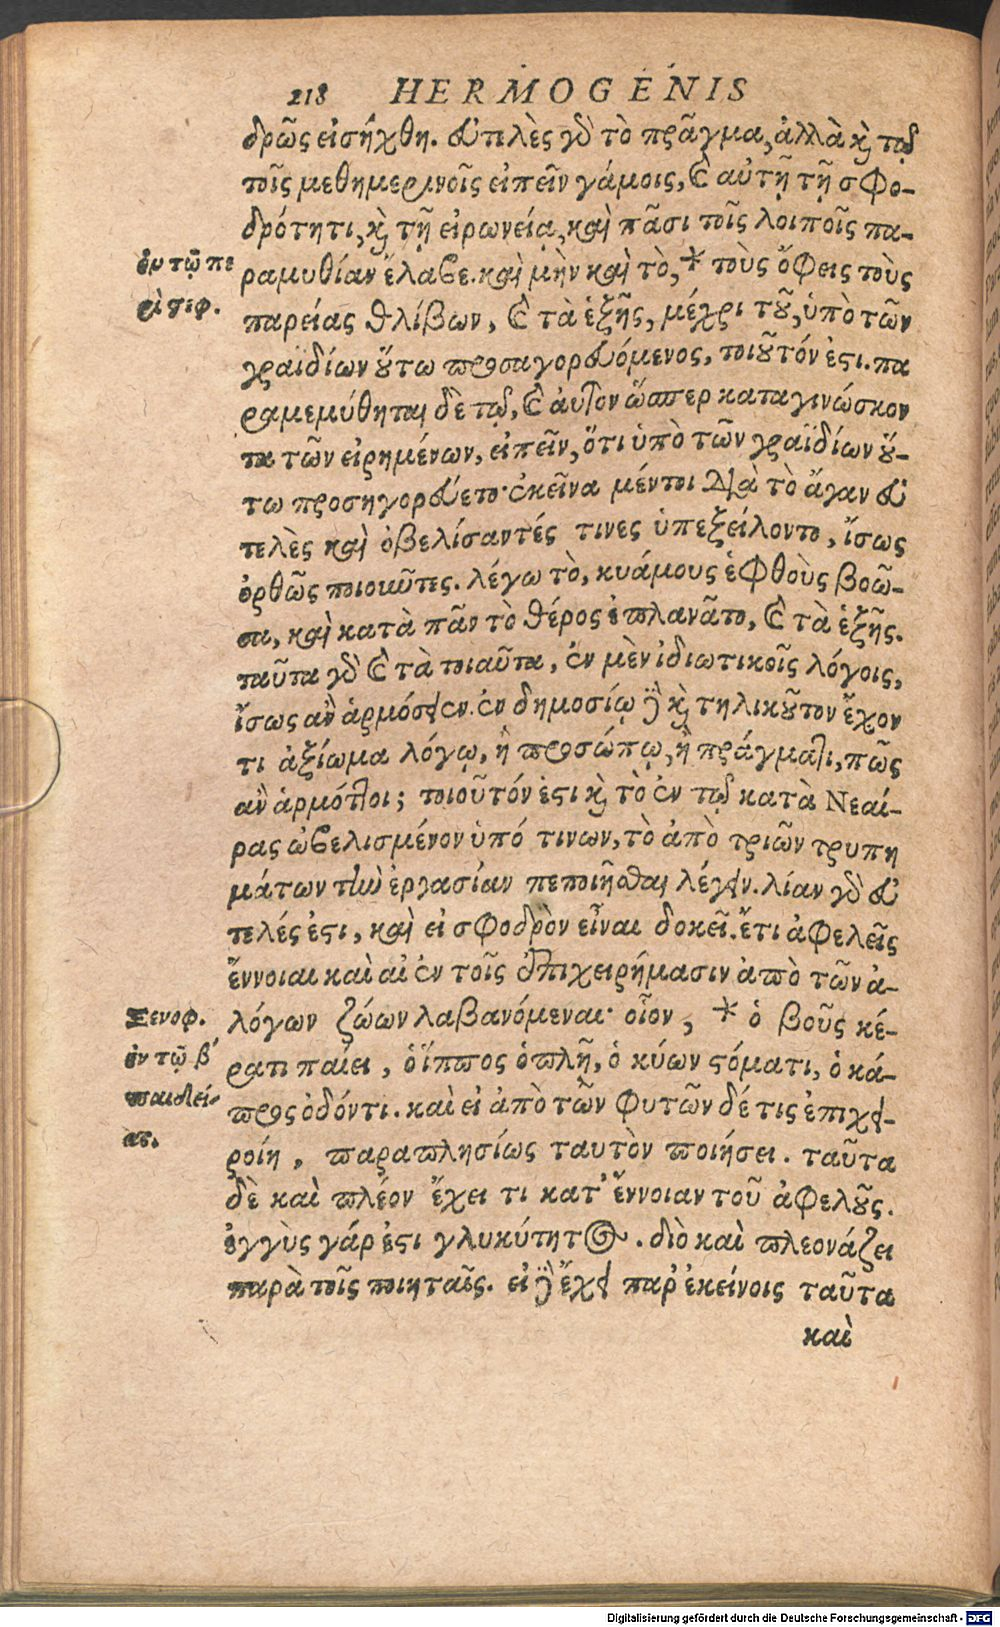 218 HERMOGENIS
δρῶς εἰσήχθη. εὐτελὲς γὰρ τὸ πρᾶγμα, ἀλλὰ καὶ τῷ
τοῖς μεθημερινοῖς εἰπεῖν γάμοις, καὶ αὐτῇ τῇ σφο-
δρότητι, καὶ τῇ εἰρωνείᾳ, καὶ πᾶσι τοῖς λοιποῖς πα-
ἐν τῷ πε
ραμυθίαν ἔλαβε. καὶ μὴν καὶ τὸ, * τοὺς ὄφεις τοὺς
ρὶ στεφ.
παρείας θλίβων, καὶ τὰ ἑξῆς, μέχρι τοῦ, ὑπὸ τῶν
γραϊδίων οὕτω προσαγορευόμενος, τοιοῦτόν ἐστι. πα
ραμεμύθηται δὲ τῷ, καὶ αὐτὸν ὥσπερ καταγινώσκον
τα τῶν εἰρημένων, εἰπεῖν, ὅτι ὑπὸ τῶν γραϊδίων οὕ-
τω προσηγορεύετο· ἐκεῖνα μέντοι διὰ τὸ ἄγαν εὐ
τελὲς καὶ ὀβελίσαντές τινες ὑπεξείλοντο, ἴσως
ὀρθῶς ποιοῦντες. λέγω τὸ, κυάμους ἑφθοὺς βοῶ-
σα, καὶ κατὰ πᾶν τὸ θέρος ἐπλανᾶτο, καὶ τὰ ἑξῆς.
ταῦτα γὰρ καὶ τὰ τοιαῦτα, ἐν μὲν ἰδιωτικοῖς λόγοις,
ἴσως ἂν ἁρμόσειεν. ἐν δημοσίῳ δὲ καὶ τηλικοῦτον ἔχον
τι ἀξίωμα λόγῳ, ἢ προσώπῳ, ἢ πράγματι, πῶς
ἂν ἁρμόττοι; τοιοῦτόν ἐστι καὶ τὸ ἐν τῷ κατὰ Νεαί-
ρας ὠβελισμένον ὑπό τινων, τὸ ἀπὸ τριῶν τρυπη
μάτων τὴν ἐργασίαν πεποιῆσθαι λέγειν. λίαν γὰρ εὐ
τελές ἐστι, καὶ εἰ σφοδρὸν εἶναι δοκεῖ. ἔτι ἀφελεῖς
ἔννοιαι καὶ αἱ ἐν τοῖς ἐπιχειρήμασιν ἀπὸ τῶν ἀ-
Ξενοφ.
λόγων ζώων λαβανόμεναι· οἷον, * ὁ βοῦς κέ-
ἐν τῷ β´
ρατι παίει, ὁ ἵππος ὁπλῇ, ὁ κύων στόματι, ὁ κά-
παιδεί-
προς ὀδόντι. καὶ εἰ ἀπὸ τῶν φυτῶν δέ τις ἐπιχει-
ας.
ροίη, παραπλησίως ταυτὸν ποιήσει. ταῦτα
δὲ καὶ πλέον ἔχει τι κατ' ἔννοιαν τοῦ ἀφελοῦς.
ἐγγὺς γάρ ἐστι γλυκύτητος. διὸ καὶ πλεονάζει
παρὰ τοῖς ποιηταῖς. εἰ δὲ ἔχει παρ' ἐκείνοις ταῦτα
καὶ
Digitalisierung gefördert durch die Deutsche Forschungsgemeinschaft - DFG